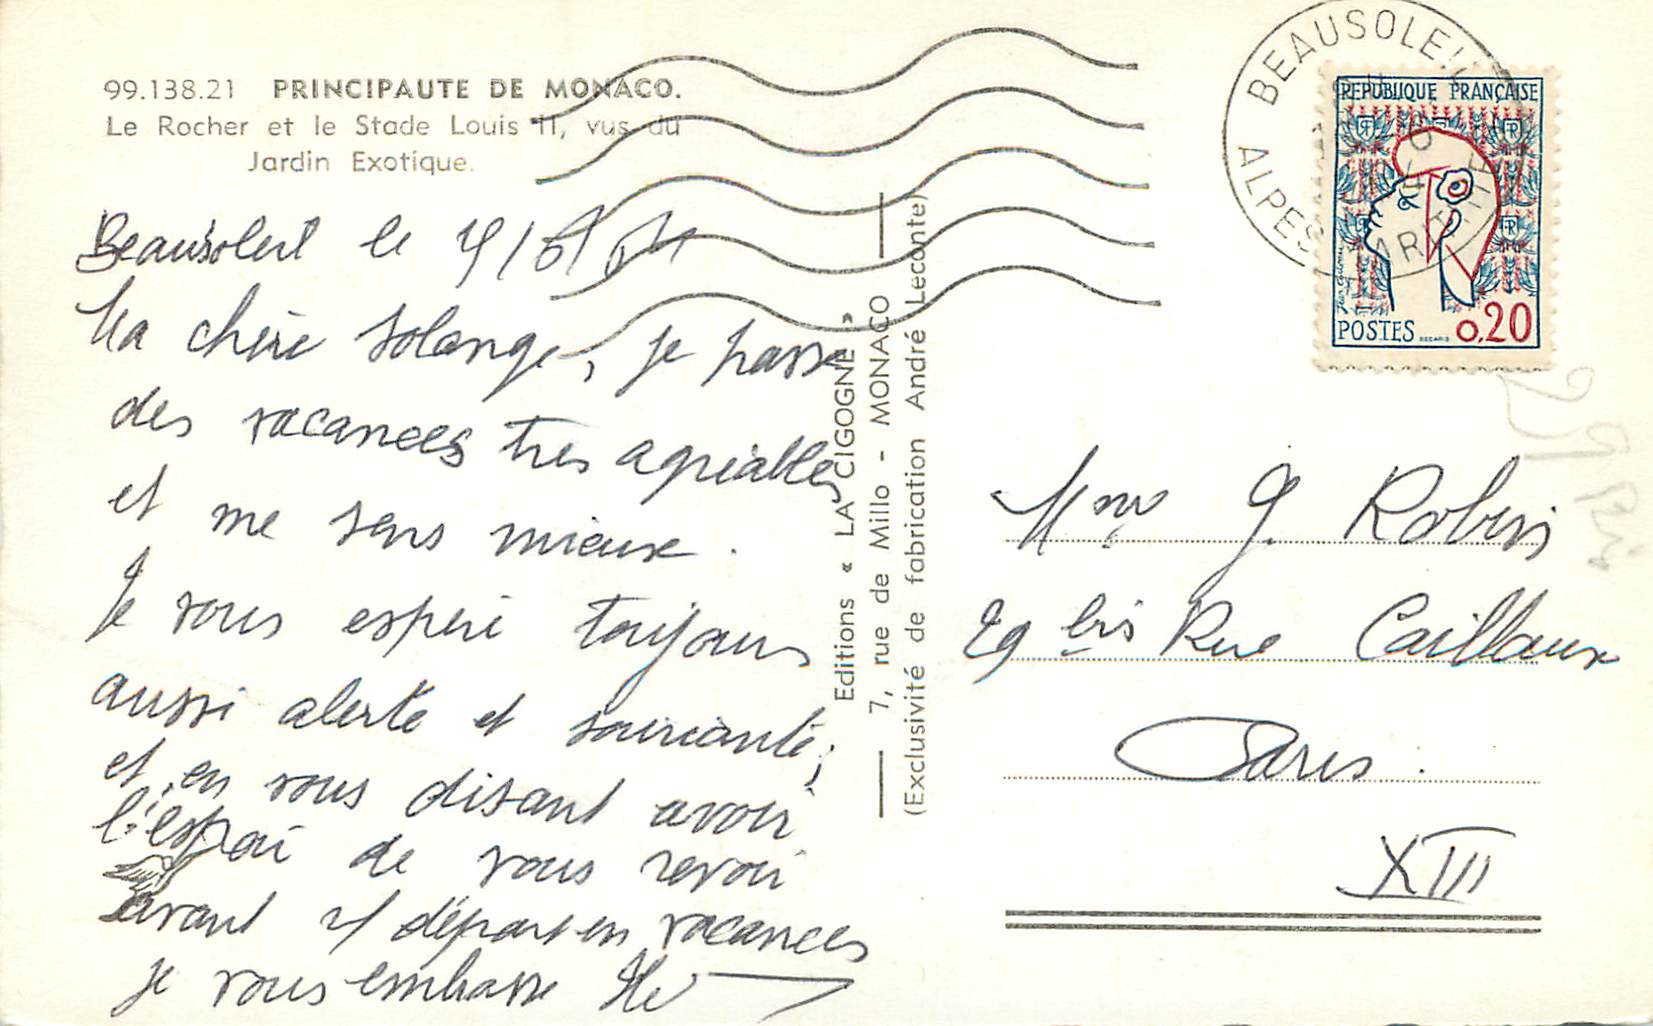 99.138.21 PRINCIPAUTE DE MONACO.
Le Rocher et le Stade Louis II, vus du
Jardin Exotique.
Beausoleil le 4/6/64
Ma chère Solange, je passe
des vacances tres agréables
et me sens mieux.
Je vous espère toujours
aussi alerte et souriante,
et en vous disant avoir
l'espoir de vous revoir
avant départ en vacances
je vous embrasse
Editions « LA CIGOGNE »
7, rue de Millo - MONACO
(Exclusivité de fabrication André Leconte)
BEAUSOLEIL
ALPES MARITIMES
REPUBLIQUE FRANÇAISE
RF
RF
RF
RF
POSTES 0,20
DECARIS
Mme G. Robin
29 bis Rue Caillaux
Paris.
XIII